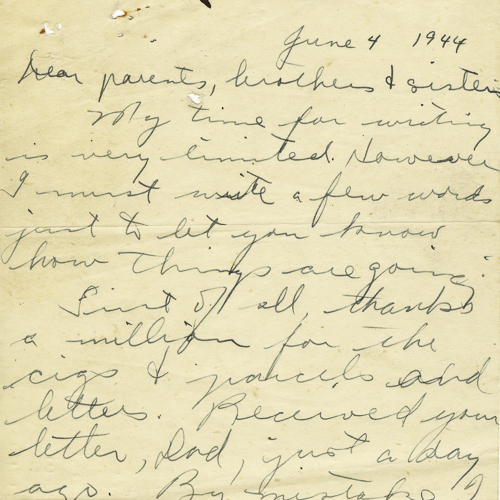 June 4 1944
Dear parents, brothers & sisters
My time for writing
is very limited. However
I must write a few words
just to let you know
how things are going.
First of all, thanks
a million for the
cigs & parcels and
letters. Received your
letter, Dad, just a day
ago. By mistake I